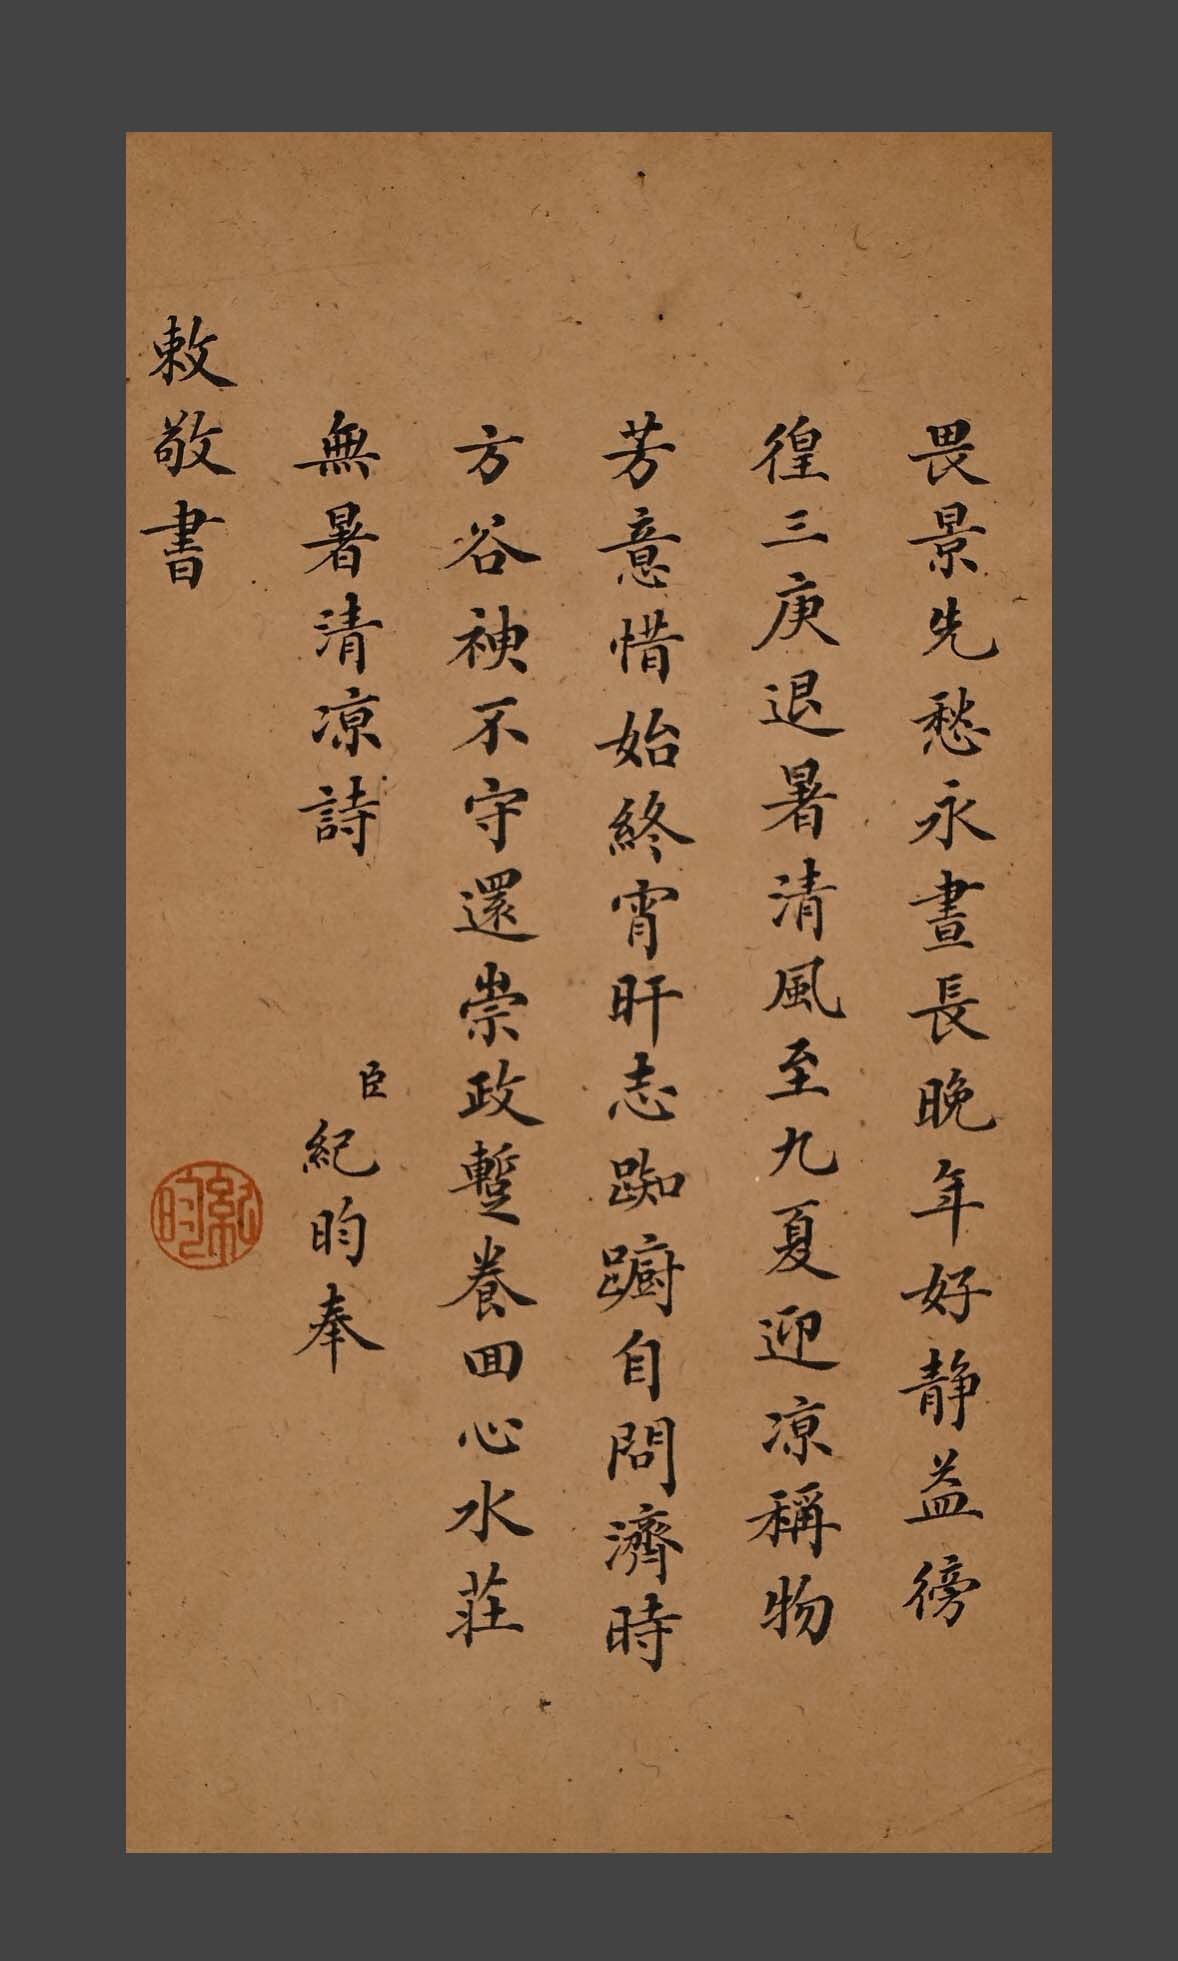 畏景先愁永晝長晚年好靜益徬
徨三庚退暑清風至九夏迎凉稱物
芳意惜始終宵旰志踟躕自問濟時
方谷神不守還崇政暫養回心水莊
無暑清凉詩
臣紀昀奉
敕敬書
紀昀